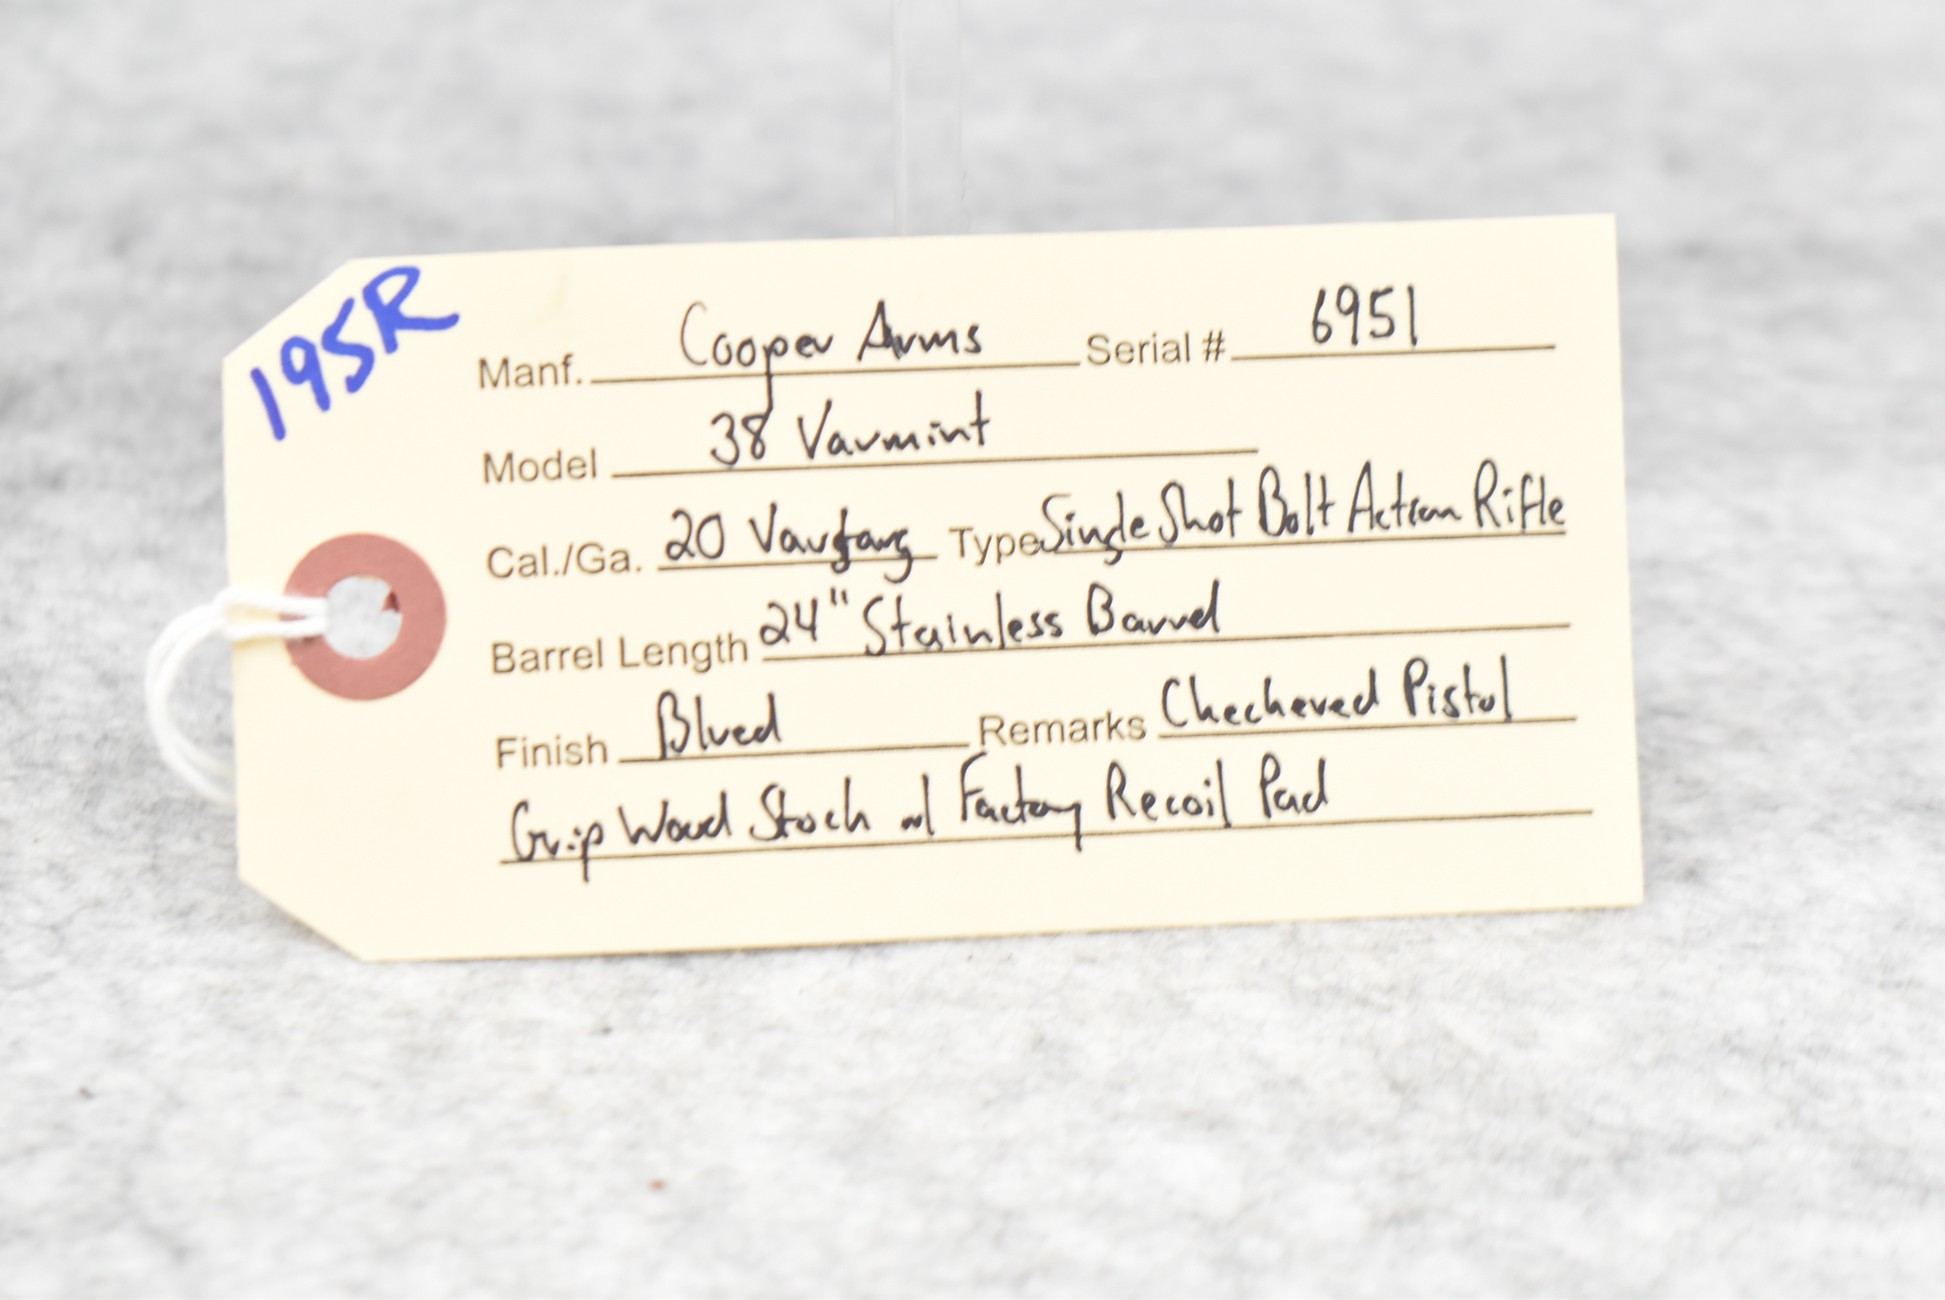 195R
Manf. Cooper Arms Serial # 6951
Model 38 Varmint
Cal./Ga. 20 Vartarg Type Single Shot Bolt Action Rifle
Barrel Length 24" Stainless Barrel
Finish Blued Remarks Checkered Pistol
Grip Wood Stock w/ Factory Recoil Pad